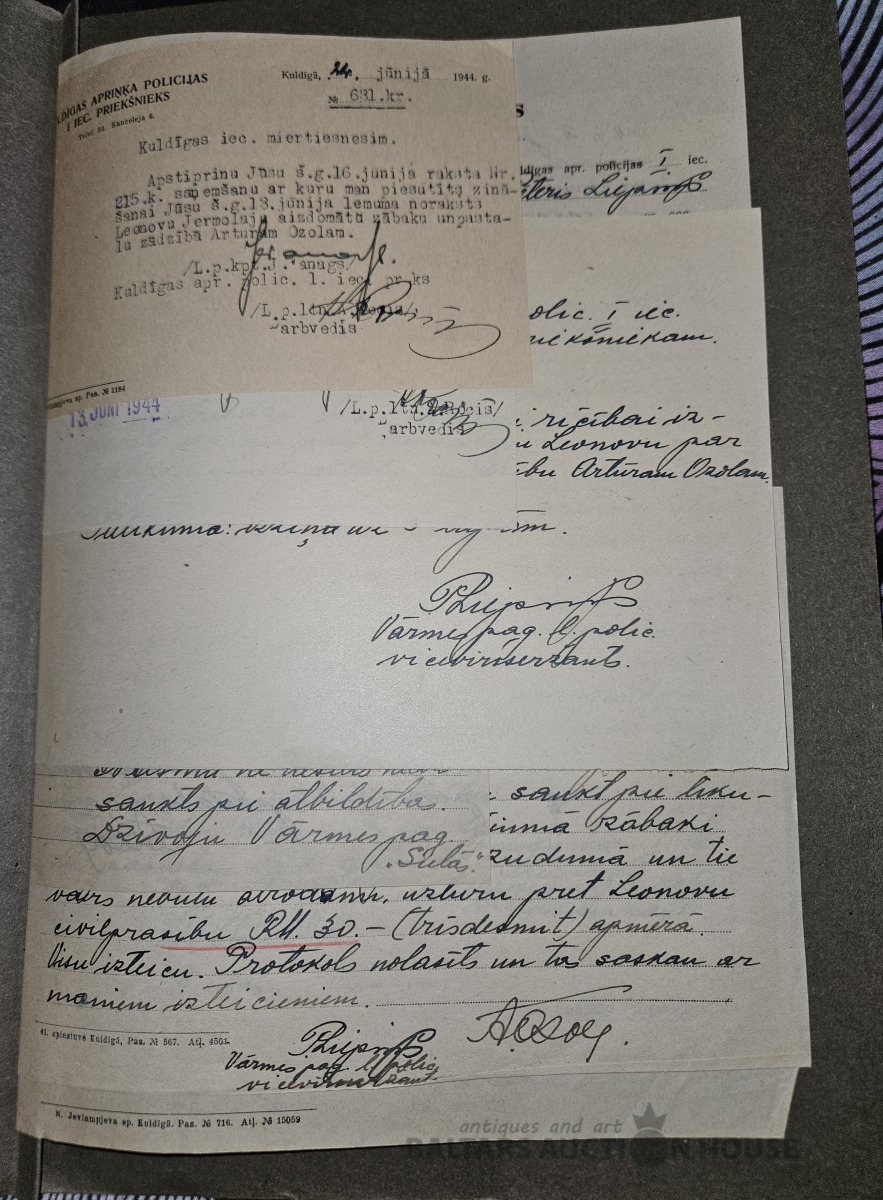 LDĪGAS APRIŅĶA POLICIJAS
I IEC. PRIEKŠNIEKS
Telef. 52. Kanceleja 6.
Kuldīgā, 22. jūnijā 1944. g.
№ 631.kr.
Kuldīgas iec. miertiesnesim.
Apstiprinu Jūsu š.g.16.jūnija raksta Nr.
215.k. saņemšanu ar kuru man piesutīts zinā-
šanai Jūsu š.g.13.jūnija lēmuma noraksts
Leonovu Jermolaju aizdomātu zābaku unpasta-
lu zādzībā Arturam Ozolam.
/L.p.kpt.J. anags/
Kuldīgas apr. polic. 1. iec. pr-ks
arbvedis
sp. Pas. № 1184
ldīgas apr. policijas I iec.
olic. I iec.
niekšniekam.
13. JUNI 1944
/L.p.ltn. Rocis/
arbvedis
rīcībai iz-
u Leonovu par
ību Artūram Ozolam.
Vārmes pag. polic.
vicevirsseržants.
saukts pie atbildības.
Dzīvoju Vārmes pag.
"Sulās."
saukt pie liku-
zābaki
zudumā un tie
vairs nevulu atrodami, uzturu pret Leonovu
civilprasību RM. 30.- (trīsdesmit) apmērā.
Visu izteicu. Protokols nolasīts un tas saskan ar
maniem izteicieniem.
41. spiestuve Kuldīgā, Pas. № 867. Atļ. 4501.
A Ozol
Vārmes pag. polic.
N. Jevlampjeva sp. Kuldīgā. Pas. № 716. Atļ. № 15059
antiques and art
BALTARS AUCTION HOUSE